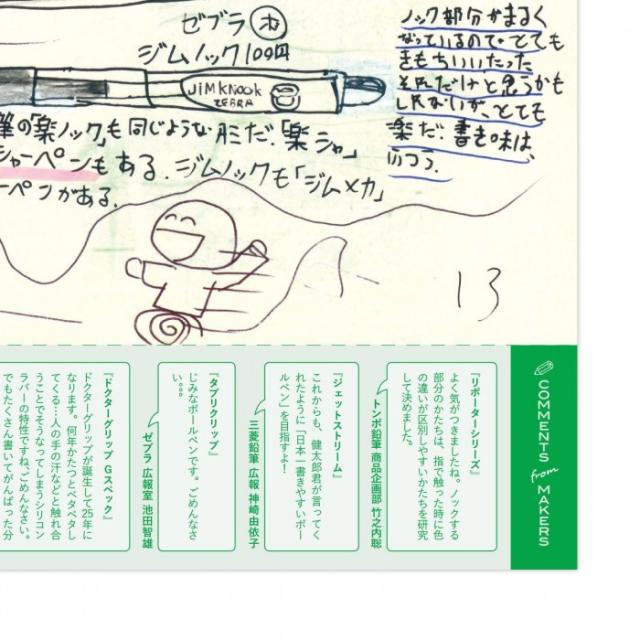 ゼブラ
ジムノック100円
JiMKNOCK
ZEBRA
ノック部分がまるく
なっているので、とても
きもちいい。たった
それだけと思うかも
しれないが、とても
楽だ。書き味は、
ふつう。
筆の「楽ノック」も同じような形だ。「楽シャ」
シャーペンもある。ジムノックも「ジムメカ」
ーペンがある。
13
COMMENTS
from
MAKERS
『リポーターシリーズ』
よく気がつきましたね。ノックする
部分のかたちは、指で触った時に色
の違いが区別しやすいかたちを研究
して決めました。
トンボ鉛筆 商品企画部 竹之内聡
『ジェットストリーム』
これからも、健太郎君が言ってく
れたように「日本一書きやすいボー
ルペン」を目指すよ!
三菱鉛筆 広報 神崎由依子
『タプリクリップ』
じみなボールペンです。ごめんなさ
い。。。
ゼブラ 広報室 池田智雄
『ドクターグリップ Gスペック』
ドクターグリップが誕生して25年に
なります。何年かたつとベタベタし
てくる…人の手の汗などと触れ合
うことでそうなってしまうシリコン
ラバーの特性ですね、ごめんなさい。
でもたくさん書いてがんばった分